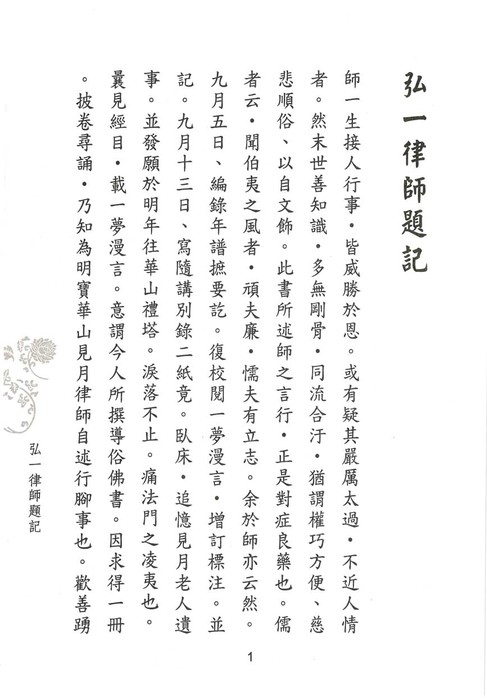 弘一律師題記
師一生接人行事・皆威勝於恩。或有疑其嚴厲太過・不近人情
者。然末世善知識・多無剛骨・同流合汙・猶謂權巧方便、慈
悲順俗、以自文飾。此書所述師之言行・正是對症良藥也。儒
者云・聞伯夷之風者・頑夫廉・懦夫有立志。余於師亦云然。
九月五日、編錄年譜摭要訖。復校閱一夢漫言・增訂標注。並
記。九月十三日、寫隨講別錄二紙竟。臥床・追憶見月老人遺
事。並發願於明年往華山禮塔。淚落不止。痛法門之凌夷也。
曩見經目・載一夢漫言。意謂今人所撰導俗佛書。因求得一冊
。披卷尋誦・乃知為明寶華山見月律師自述行腳事也。歡喜踴
弘一律師題記
1